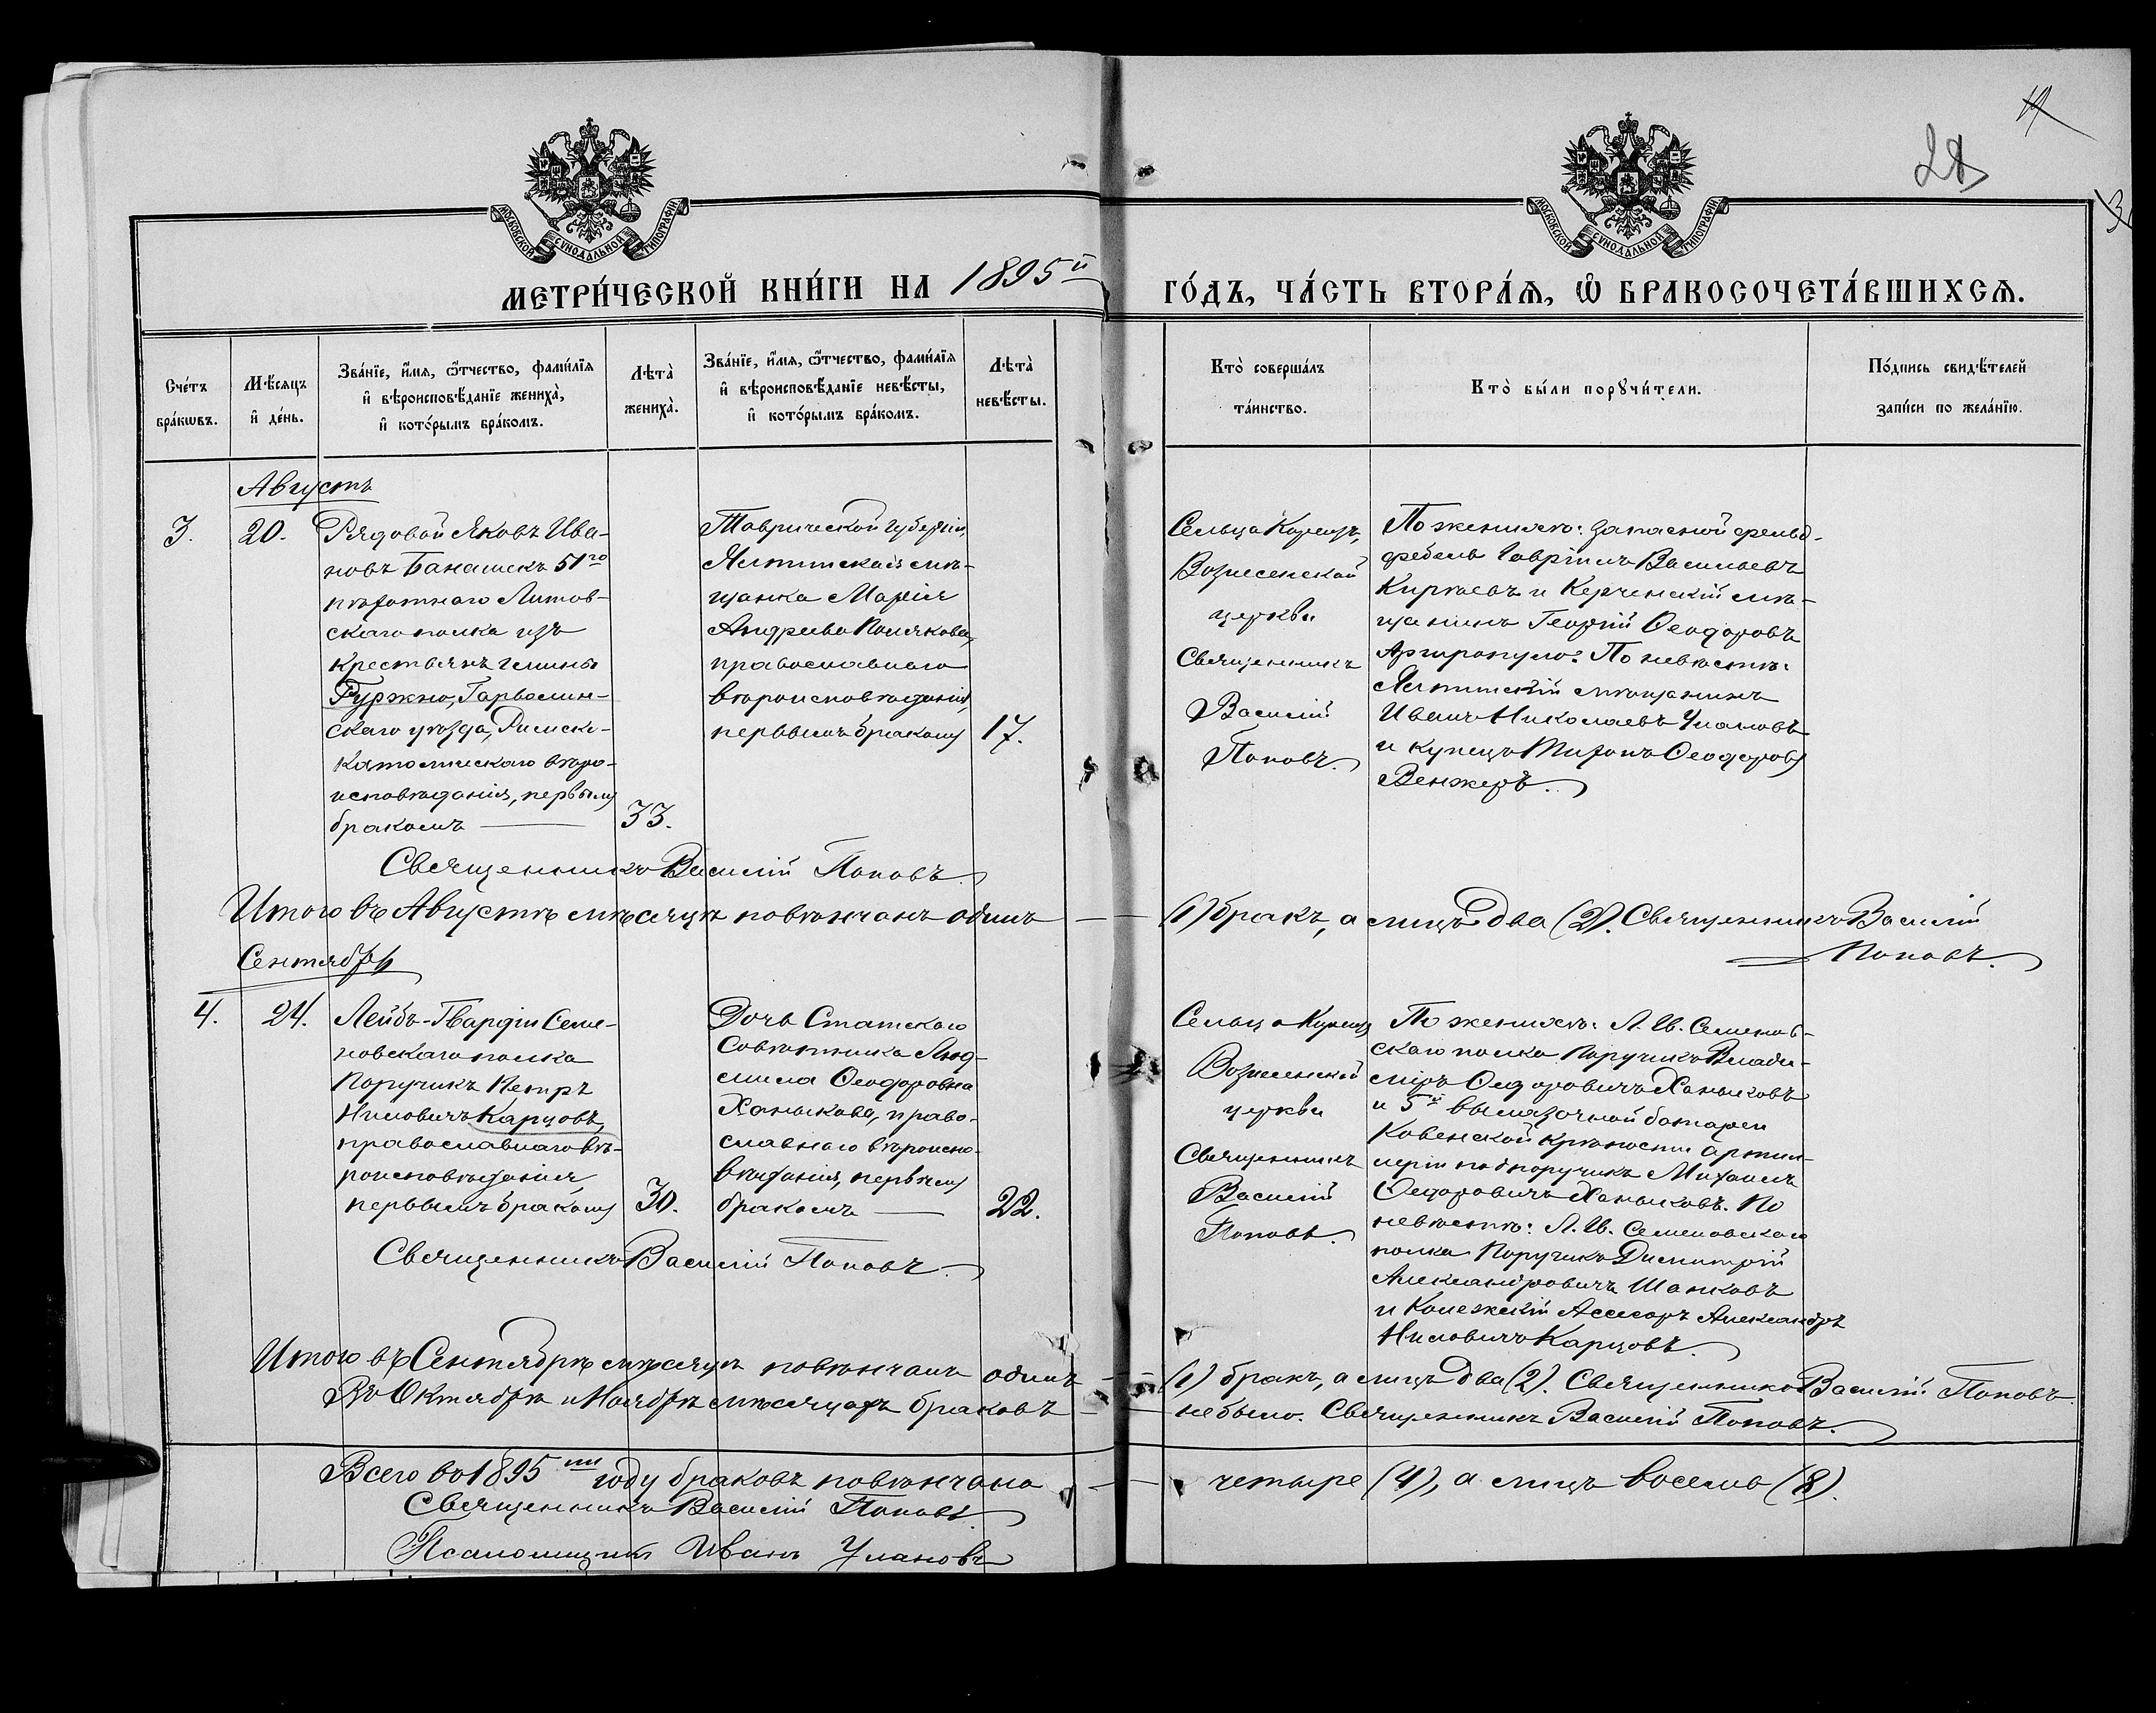 19
28
3
МОСКОВСКОЙ СѴНОДАЛЬНОЙ ТИПОГРАФІИ
МОСКОВСКОЙ СѴНОДАЛЬНОЙ ТИПОГРАФІИ
МЕТРИ́ЧЕСКОЙ КНИ́ГИ НА 1895й
ГО́ДЪ, ЧА́СТЬ ВТОРА́Ѧ, Ѽ БРАКОСОЧЕТА́ВШИХСѦ.
Сче́тъ
бра́кѡвъ.
Мѣ́сяцъ
и҆ де́нь.
Зва́нїе, и҆́мя, ѻ҆́тчество, фами́лїя
и҆ вѣроисповѣ́данїе жениха̀,
и҆ кото́рымъ бра́комъ.
Лѣта̀
жениха̀.
Зва́нїе, и҆́мя, ѻ҆́тчество, фами́лїя
и҆ вѣроисповѣ́данїе невѣ́сты,
и҆ кото́рымъ бра́комъ.
Лѣта̀
невѣ́сты.
Кто̀ соверша́лъ
та́инство.
Кто̀ бы́ли порꙋчи́тели.
По́дпись свидѣ́телей
запи́си по жела́нїю.
Августъ
3.
20.
Рядовой Яковъ Ива-
новъ Банашекъ 51го
пѣхотнаго Литов-
скаго полка изъ
крестьянъ гмины
Гуржно, Гарволин-
скаго уѣзда, Римско-
католическаго вѣро-
исповѣданія, первымъ
бракомъ
33.
Таврической губерніи,
Ялтинская мѣ-
щанка Марія
Андреева Полякова,
православнаго
вѣроисповѣданія,
первымъ бракомъ
17.
Сельца Кореизъ,
Вознесенской
церкви
Священникъ
Василій
Поповъ.
По женихѣ: запасной фельд-
фебель Гавріилъ Васильевъ
Киреевъ и Керченскій мѣ-
щанинъ Георгій Ѳеодоровъ
Аргиропуло. По невѣстѣ:
Ялтинскій мѣщанинъ
Иванъ Николаевъ Улановъ
и купецъ Тихонъ Ѳеодоровъ
Венжеръ.
Священникъ Василій Поповъ.
Итого въ Августѣ мѣсяцѣ повѣнчанъ одинъ
(1) бракъ, а лицъ два (2). Священникъ Василій
Поповъ.
Сентябрь
4.
24.
Лейбъ-Гвардіи Семе-
новскаго полка
Поручикъ Петръ
Ниловичъ Карцовъ,
православнаго вѣ-
роисповѣданія,
первымъ бракомъ
30.
Дочь Статскаго
Совѣтника Люд-
мила Ѳеодоровна
Ханыкова, право-
славнаго вѣроиспо-
вѣданія, первымъ
бракомъ
22.
Сельца Кореизъ
Вознесенской
церкви
Священникъ
Василій
Поповъ.
По женихѣ: Л. Гв. Семенов-
скаго полка Поручикъ Влади-
міръ Ѳедоровичъ Ханыковъ
и 5й вылазочной батареи
Ковенской крѣпостн. артил-
леріи подпоручикъ Михаилъ
Ѳедоровичъ Ханыковъ. По
невѣстѣ: Л. Гв. Семеновскаго
полка Поручикъ Димитрій
Александровичъ Шанковъ
и Колежскій Асесоръ Александръ
Ниловичъ Карцовъ.
Священникъ Василій Поповъ.
Итого въ Сентябрѣ мѣсяцѣ повѣнчанъ одинъ
(1) бракъ, а лицъ два (2). Священникъ Василій Поповъ.
Въ Октябрѣ и Ноябрѣ мѣсяцахъ браковъ
не было. Священникъ Василій Поповъ.
Всего въ 1895мъ году браковъ повѣнчано
четыре (4), а лицъ восемь (8).
Священникъ Василій Поповъ.
Псаломщикъ Иванъ Улановъ